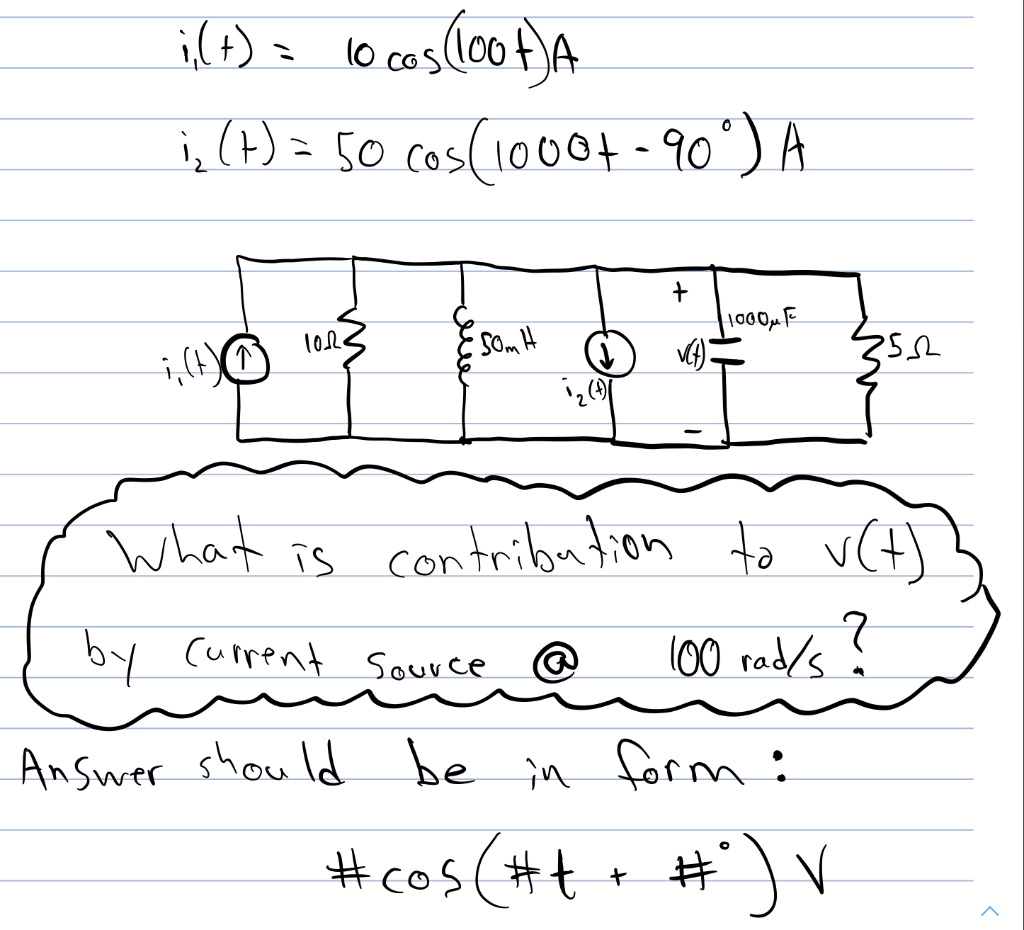 i₁(t) = 10 cos(100t)A
i₂(t) = 50 cos(1000t - 90°) A
i₁(t) 10Ω 50mH i₂(t) + v(t) - 1000μF 5Ω
What is contribution to v(t)
by current source @ 100 rad/s ?
Answer should be in form :
#cos(#t + #°) V